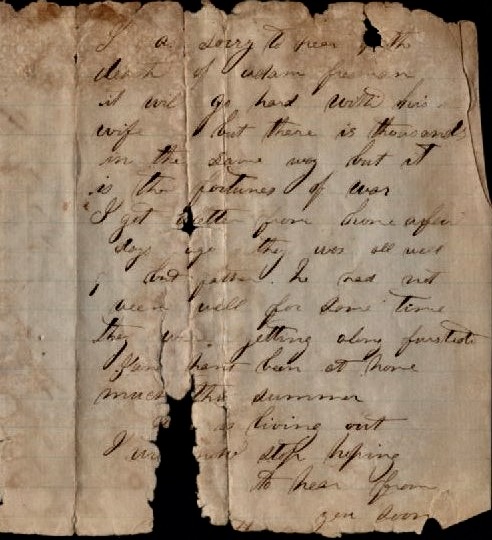 I a sorry to hear of the
death of adam freman
it will go hard with his
wife but there is thousands
in the same way but it
is the fortunes of war
I got a letter from home a few
days ago they was all well
but father. he had not
been well for some time
they were getting along
hant ben at home
much this summer
is living out
I will stop hoping
to hear from
you soon